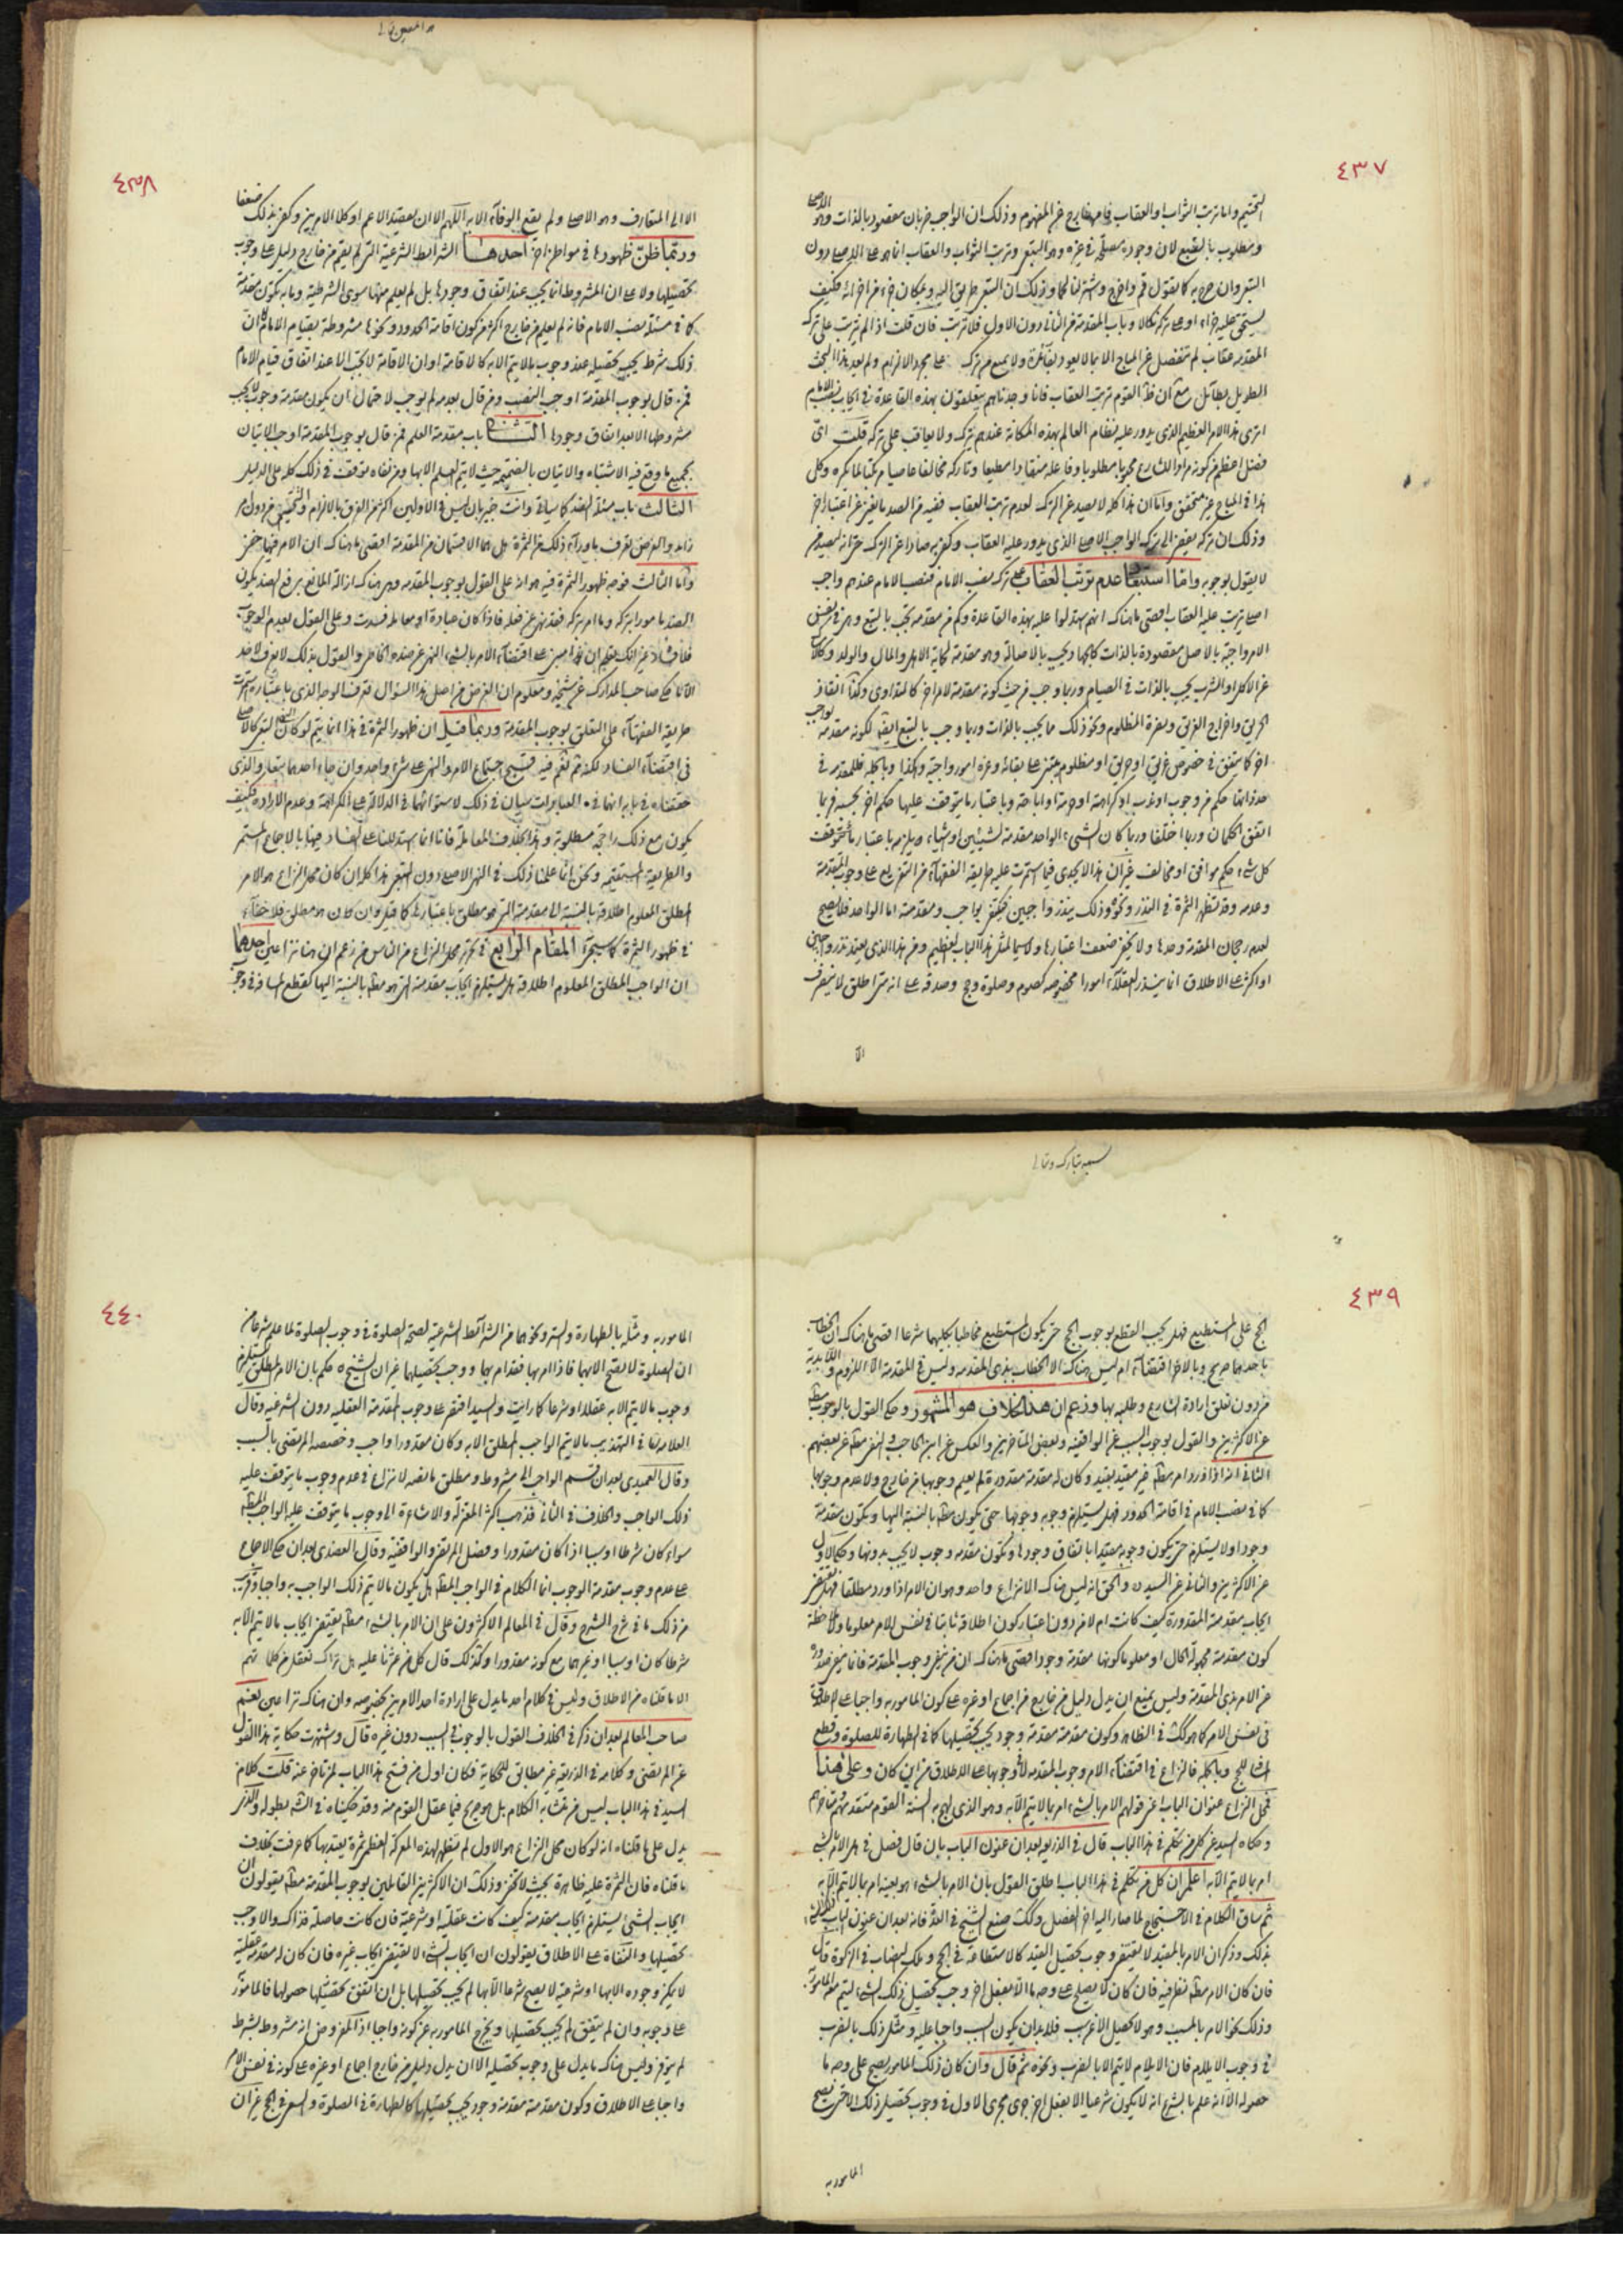 ٤٣٧
التحتيم واما ترتب الثواب والعقاب فامر خارج عن المفهوم وذلك ان الواجب ضربان مقصود بالذات وهو الاصلي
ومطلوب بالتبع لان وجوده مصلحة في غيره وهو التبعي وترتب الثواب والعقاب انما هو على الاصلي دون
التبعي وان صرح به كما تقول قم واخرج واشتر لنا لحما وذلك ان التبعي طريق اليه وكان جزء من اجزائه فكيف
يستحق عليه جزاء او على تركه نكالا وباب المقدمة من الثاني دون الاول فلا ترتب فان قلت اذا لم يترتب على ترك
المقدمة عقاب لم تنفصل عن المباح الا بما لا يعود بفائدة ولا يمنع من تركه على مجرد الالزام ولم يعد هذا البحث
الطويل بطائل مع ان ظ القوم ترتب العقاب فانا وجدناهم يتعلقون بهذه القاعدة في ايجاب نصب الامام
اترى هذا الامر العظيم الذي يدور عليه نظام العالم بهذه المكانة عندهم يترك ولا يعاقب على تركه قلت اي
فضل اعظم من كونه مرادا للشارع محبوبا مطلوبا وفاعله منقادا مطيعا وتاركه مخالفا عاصيا مرتكبا لما يكره وكل
هذا في المباح غير متحقق واما ان هذا كله لا يصد عن الترك لعدم ترتب العقاب ففيه من الصد ما يغني عن اعتبار اخر
وذلك ان تركه يفضي الى ترك الواجب الاصلي الذي يدور عليه العقاب وكفى به صادا عن الترك حتى انه ليصد من
لا يقول بوجوبه واما استبعاد عدم ترتب العقاب على ترك نصب الامام فنصب الامام عندهم واجب
اصلي يترتب عليه العقاب اقصى ما هناك انهم استدلوا عليه بهذه القاعدة وكم من مقدمة تجب بالتبع وهي في نفس
الامر واجبة بالاصل مقصودة بالذات كما يجب بالاصالة وهو مقدمة لحماية الاهل والمال والولد وكالامساك
عن الاكل والشرب يجب بالذات في الصيام وربما وجب من حيث كونه مقدمة لامر اخر كالتداوي وكذا انقاذ
الحريق واخراج الغريق ونصرة المظلوم ونحو ذلك مما يجب بالذات وربما وجب بالتبع ايضا لكونه مقدمة لواجب
اخر كما يتفق في خصوص غريق او حريق او مظلوم يبتني على بقائه وعزه امور واجبة وهكذا وبالجملة فللمقدمة في
حد ذاتها حكم من وجوب او ندب او كراهة او حرمة او اباحة وباعتبار ما يتوقف عليها حكم اخر بحسبه فربما
اتفق الحكمان وربما اختلفا وربما كان الشيء الواحد مقدمة لشيئين او اشياء ويلزمه باعتبار ما يتوقف
كل شيء حكم موافق او مخالف غير ان هذا لا يجدي فيما استمرت عليه طريقة الفقهاء من التفريع على وجوب المقدمة
وعدمه وقد تظهر الثمرة في النذر ونحوه وذلك بنذر واجبين فيكتفي بواجب ومقدمته اما الواحد فلا يصح
لعدم رجحان المقدمة وحدها ولا يخفى ضعف اعتبارها ولا سيما لمثل هذا الباب العظيم ومن هذا الذي يعتد بنذر واجبين
او اكثر على الاطلاق انما ينذر العقلاء امورا مخصوصة كصوم وصلوة وحج وصدقة على انه متى اطلق لا ينصرف
الا
٤٣٨
الا الى المتعارف وهو الاصلي ولم يقع الوفاء الا به اللهم الا ان يقصد الاعم او كلا الامرين وكفى بذلك ضعفا
وربما ظن ظهورها في مواطن اخر احدها الشرائط الشرعية التي لم يقم من خارج دليل على وجوب
تحصيلها ولا على ان المشروط انما يجب عند اتفاق وجودها بل لم يعلم منها سوى الشرطية وما به تكون مقدمة
كما في مسئلة نصب الامام فانه لم يعلم من خارج اكثر من كون اقامة الحدود ونحوها مشروطة بقيام الامام اما ان
ذلك شرط يجب تحصيله عند وجوب ما لا يتم الا به كالاقامة او ان الاقامة لا تجب الا عند اتفاق قيام الامام
فمن قال بوجوب المقدمة اوجب النصب ومن قال بعدمه لم يوجب لاحتمال ان يكون مقدمة وجوب لا يجب
مشروطها الا بعد اتفاق وجودها الثاني باب مقدمة العلم فمن قال بوجوب المقدمة اوجب الاتيان
بجميع ما وقع فيه الاشتباه والاتيان بالضميمة حيث لا يتم العلم الا بها ومن نفاه توقف في ذلك كله على الدليل
الثالث باب مسئلة الضد كما سياتي وانت خبير بان ليس في الاولين اكثر من الفرق بالالزام والتحتيم من دون امر
زائد والغرض تعرف ما وراء ذلك من الثمرة بل هما الا قسمان من المقدمة اقصى ما هناك ان الامر فيهما خفي
واما الثالث فوجه ظهور الثمرة فيه هو انه على القول بوجوب المقدمة وهي هناك ازالة المانع برفع الضد يكون
الضد مامورا بتركه وما امر بتركه فقد نهي عن فعله فاذا كان عبادة او معاملة فسدت وعلى القول بعدم الوجوب
فلا فساد غير انك تعلم ان هذا مبني على اقتضاء الامر بالشيء النهي عن ضده الخاص والقول بذلك لا يعرف لاحد
الا ما حكي صاحب المدارك عن شيخه ومعلوم ان الغرض من اصل هذا السؤال تعرف الوجه الذي باعتباره استمرت
طريقة الفقهاء على التعلق بوجوب المقدمة وربما قيل ان ظهور الثمرة في هذا انما يتم لو كان النهي التبعي كالاصلي
في اقتضاء الفساد لكنه ثم نعم فيه قبح اجتماع الامر والنهي على شيء واحد وان جاء احدهما تبعا والذي
حققناه في بابه انهما في العبادات سيان في ذلك لاستوائهما في الدلالة على الكراهة وعدم الارادة فكيف
يكون مع ذلك راجحة مطلوبة وهذا بخلاف المعاملة فانا انما استدللنا على الفساد فيها بالاجماع المستمر
والطريقة المستقيمة ونحن انما علمنا ذلك في النهي الاصلي دون التبعي هذا كله ان كان محل النزاع هو الامر
المطلق المعلوم اطلاقه بالنسبة الى مقدمته التي هو مطلق باعتبارها كما قيل وان كان هو مطلق فلا خفاء
في ظهور الثمرة كما سيجيء المقام الرابع في تحرير محل النزاع من الناس من زعم ان هنا نزاعين احدهما
ان الواجب المطلق المعلوم اطلاقه هل يستلزم ايجاب مقدمته التي هو مط بالنسبة اليها كقطع المسافة في وجوب
٤٣٩
الحج على المستطيع فهل يجب القطع بوجوب الحج حتى يكون المستطيع مخاطبا بكليهما شرعا اقصى ما هناك ان الخطاب
باحدهما صريح وبالاخر اقتضاء ام ليس هناك الا الخطاب بذي المقدمة وليس في المقدمة الا اللزوم واللابدية
من دون تعلق ارادة الشارع وطلبه بها وزعم ان هذا الخلاف هو المشهور وحكي القول بالوجوب مط
عن الاكثرين والقول بوجوب السبب عن الواقفية وبعض المتاخرين والعكس عن ابن الحاجب والنفي مط عن بعضهم
الثاني انه اذا ورد امر مط غير مقيد بقيد وكان له مقدمة مقدورة لم يعلم وجوبها من خارج ولا عدم وجوبها
كما في نصب الامام في اقامة الحدود فهل يستلزم وجوبه وجوبها حتى يكون مط بالنسبة اليها وتكون مقدمة
وجود او لا يستلزم حتى يكون وجوبه مقيدا باتفاق وجودها وتكون مقدمة وجوب لا يجب بدونها وحكي الاول
عن الاكثرين والثاني عن السيد ره والحق انه ليس هناك الا نزاع واحد وهو ان الامر اذا ورد مطلقا فهل يقتضي
ايجاب مقدمته المقدورة كيف كانت ام لا من دون اعتبار كون اطلاقه ثابتا في نفس الامر معلوما وملاحظة
كون مقدمته مجهولة الحال او معلوما كونها مقدمة وجود اقصى ما هناك ان من ينفي وجوب المقدمة فانما ينفي صدوره
عن الامر بذي المقدمة وليس يمنع ان يدل دليل من خارج من اجماع او غيره على كون المامور به واجبا على الاطلاق
في نفس الامر كما هو كك في الظاهر وكون مقدمته مقدمة وجود يجب تحصيلها كما في الطهارة للصلوة وقطع
المسافة للحج وبالجملة فالنزاع في اقتضاء الامر وجوب المقدمة لا في وجوبها على الاطلاق من اين كان وعلى هذا
فمحل النزاع عنوان الباب اعني قولهم الامر بالشيء امر بما لا يتم الا به وهو الذي لهج به السنة القوم متقدمهم ومتاخرهم
وحكاه السيد عن كل من تكلم في هذا الباب قال في الذريعة بعد ان عنون الباب بان قال فصل في هل الامر بالشيء
امر بما لا يتم الا به اعلم ان كل من تكلم في هذا الباب اطلق القول بان الامر بالشيء هو بعينه امر بما لا يتم الا به
ثم ساق الكلام في الاحتجاج لما صار اليه اخر الفصل وكك صنع الشيخ في العدة فانه بعد ان عنون الباب
بذلك وذكر ان الامر بالمقيد لا يقتضي وجوب تحصيل القيد كالاستطاعة في الحج وملك النصاب في الزكوة قال
فان كان الامر مط نظر فيه فان كان لا يصلح على وجه ما الا بفعل اخر وجب تحصيل ذلك الشيء ليتم معه المامور به
وذلك نحو الامر بالمسبب وهو لا يحصل الا عن سبب فلا بد ان يكون السبب واجبا عليه ومثل ذلك بالضرب
في وجوب الايلام فان الايلام لا يتم الا بالضرب ونحوه ثم قال وان كان ذلك المامور يصح على وجه ما
حصوله الا انه علم بالشرع انه لا يكون شرعيا الا بفعل اخر جرى مجرى الاول في وجوب تحصيل ذلك الاخر ليصح
المامور به
٤٤٠
المامور به ومثله بالطهارة والستر ونحوهما من الشرائط الشرعية لصحة الصلوة في وجوب الصلوة لما علم شرعا من
ان الصلوة لا تصح الا بهما فاذا امر بها فقد امر بهما ووجب تحصيلهما غير ان الشيخ ره حكم بان الامر المطلق يستلزم
وجوب ما لا يتم الا به عقلا او شرعا كما رايت والسيد اقتصر على وجوب المقدمة العقلية دون الشرعية وقال
العلامة في التهذيب ما لا يتم الواجب المطلق الا به وكان مقدورا واجب وخصصه المرتضى بالسبب
وقال العميدي بعد ان قسم الواجب الى مشروط ومطلق ما نصه لا نزاع في عدم وجوب ما يتوقف عليه
ذلك الواجب والخلاف في الثاني فذهب اكثر المعتزلة والاشاعرة الى وجوب ما يتوقف عليه الواجب المط
سواء كان شرطا او سببا اذا كان مقدورا وفصل المرتضى والواقفية وقال العضدي بعد ان حكي الاجماع
على عدم وجوب مقدمة الوجوب انما الكلام في الواجب المط هل يكون ما لا يتم ذلك الواجب به واجبا وقريب
من ذلك ما في شرح الشرح وقال في المعالم الاكثرون على ان الامر بالشيء مط يقتضي ايجاب ما لا يتم الا به
شرطا كان او سببا او غيرهما مع كونه مقدورا وكذلك قال كل من عثرنا عليه هل تراك تعقل من كلماتهم
الا ما قلناه من الاطلاق وليس في كلام احد ما يدل على ارادة احد الامرين بخصوصه وان هناك نزاعين نعم
صاحب المعالم بعد ان ذكر في الخلاف القول بالوجوب في السبب دون غيره قال واشتهرت حكاية هذا القول
عن المرتضى وكلامه في الذريعة غير مطابق للحكاية فكان اول من فتح هذا الباب لمن تاخر عنه قلت كلام
السيد في هذا الباب ليس من متشابه الكلام بل هو صريح فيما عقل القوم منه وقد حكيناه في الشرح بطوله والذي
يدل على ما قلناه انه لو كان محل النزاع هو الاول لم تظهر لهذه المعركة العظمى ثمرة يعتد بها كما عرفت بخلاف
ما قلناه فان الثمرة عليه ظاهرة بحيث لا تخفى وذلك ان الاكثرين القائلين بوجوب المقدمة مط يقولون ان
ايجاب الشيء يستلزم ايجاب مقدمته كيف كانت عقلية او شرعية فان كانت حاصلة فذاك والا وجب
تحصيلها والنفاة على الاطلاق يقولون ان ايجاب الشيء لا يقتضي ايجاب غيره فان كان له مقدمة عقلية
لا يمكن وجوده الا بها او شرعية لا يصح شرعا الا بها لم يجب تحصيلها بل ان اتفق تحقق حصولها فالمامور
على وجوبه وان لم يتفق لم يجب تحصيلها ويخرج المامور به عن كونه واجبا اذ المفروض انه مشروط بشرط
لم يوف وليس هناك ما يدل على وجوب تحصيله الا ان يدل دليل من خارج اجماع او غيره على كونه في نفس الامر
واجبا على الاطلاق وكون مقدمته مقدمة وجود يجب تحصيلها كالطهارة في الصلوة والسعي في الحج غير ان